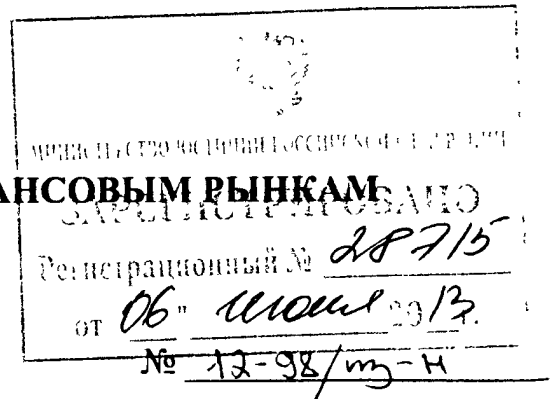 МИНИСТЕРСТВО ЮСТИЦИИ РОССИЙСКОЙ ФЕДЕРАЦИИ
АНСОВЫМ РЫНКАМ
ЗАРЕГИСТРИРОВАНО
Регистрационный № 28715
от "06" июня 2013 г.
№ 12-98/пз-н